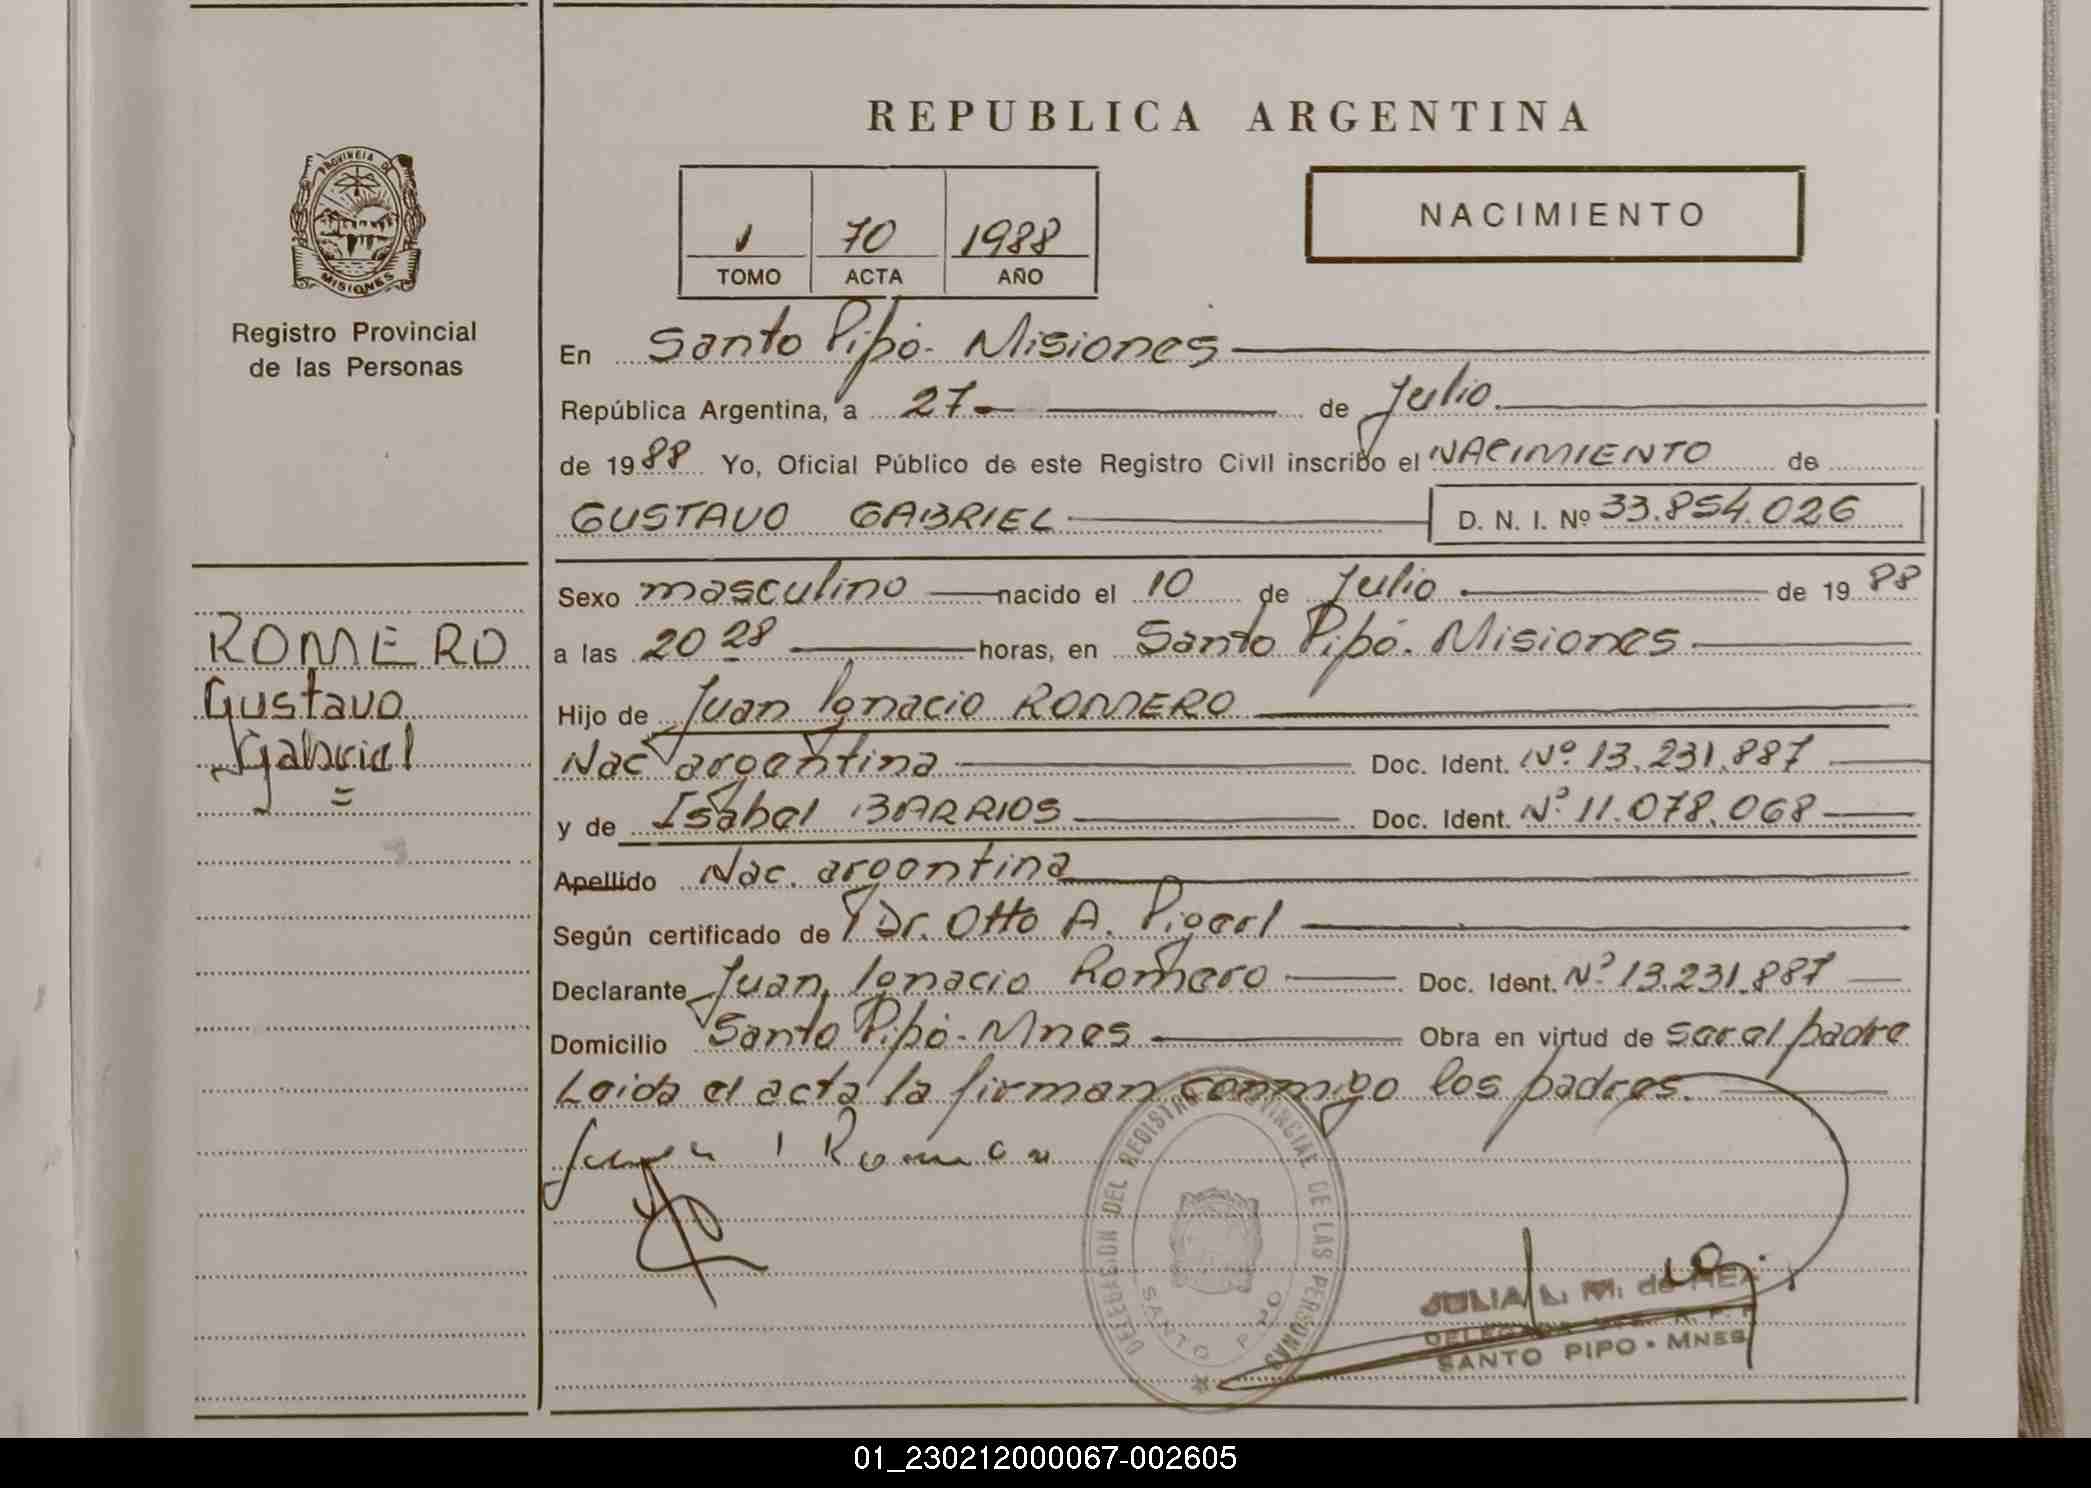 REPUBLICA ARGENTINA
PROVINCIA DE
MISIONES
Registro Provincial
de las Personas
1 70 1988
TOMO ACTA AÑO
NACIMIENTO
En Santo Pipó - Misiones
República Argentina, a 27 de Julio
de 1988 Yo, Oficial Público de este Registro Civil inscribo el NACIMIENTO de
GUSTAVO GABRIEL D. N. I. Nº 33.854.026
Sexo masculino nacido el 10 de Julio de 1988
a las 20 28 horas, en Santo Pipó. Misiones
Hijo de Juan Ignacio ROMERO
Nac argentina Doc. Ident. Nº 13.231.887
y de Isabel BARRIOS Doc. Ident. Nº 11.078.068
Apellido Nac. argentina
Según certificado de Dr. Otto A. Pigerl
Declarante Juan Ignacio Romero Doc. Ident. Nº 13.231.887
Domicilio Santo Pipó - Mnes Obra en virtud de ser el padre
Leida el acta la firman conmigo los padres.
Juan I Romero
ROMERO
Gustavo
Gabriel
=
DELEGACION DEL REGISTRO PROVINCIAL DE LAS PERSONAS
SANTO PIPO
JULIA L. M. de
DELEGADA
SANTO PIPO - MNES
01_230212000067-002605